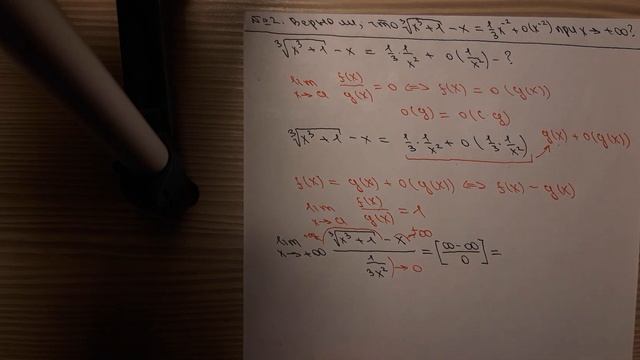 №2. Верно ли, что ∛(x³+1) - x = 1/3 x⁻² + o(x⁻²) при x→+∞?
∛(x³+1) - x = 1/3 · 1/x² + o(1/x²) - ?
lim x→a f(x)/g(x) = 0 ⇔ f(x) = o(g(x))
o(g) = o(c·g)
∛(x³+1) - x = 1/3 · 1/x² + o(1/3 · 1/x²) → g(x) + o(g(x))
f(x) = g(x) + o(g(x)) ⇔ f(x) ~ g(x)
lim x→a f(x)/g(x) = 1
lim x→+∞ (∛(x³+1) - x)/(1/3x²) = [∞-∞/0] =
+∞ →+∞ →0